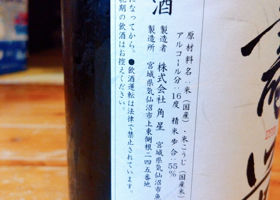 原材料名/米(国産)・米こうじ(国産米)
アルコール分/16度 精米歩合/55%
製造者 株式会社 角星 宮城県気仙沼市魚
製造所 宮城県気仙沼市上東側根二四五番地
酒
になってから。●飲酒運転は法律で禁止されています。
期の飲酒はお控えください。